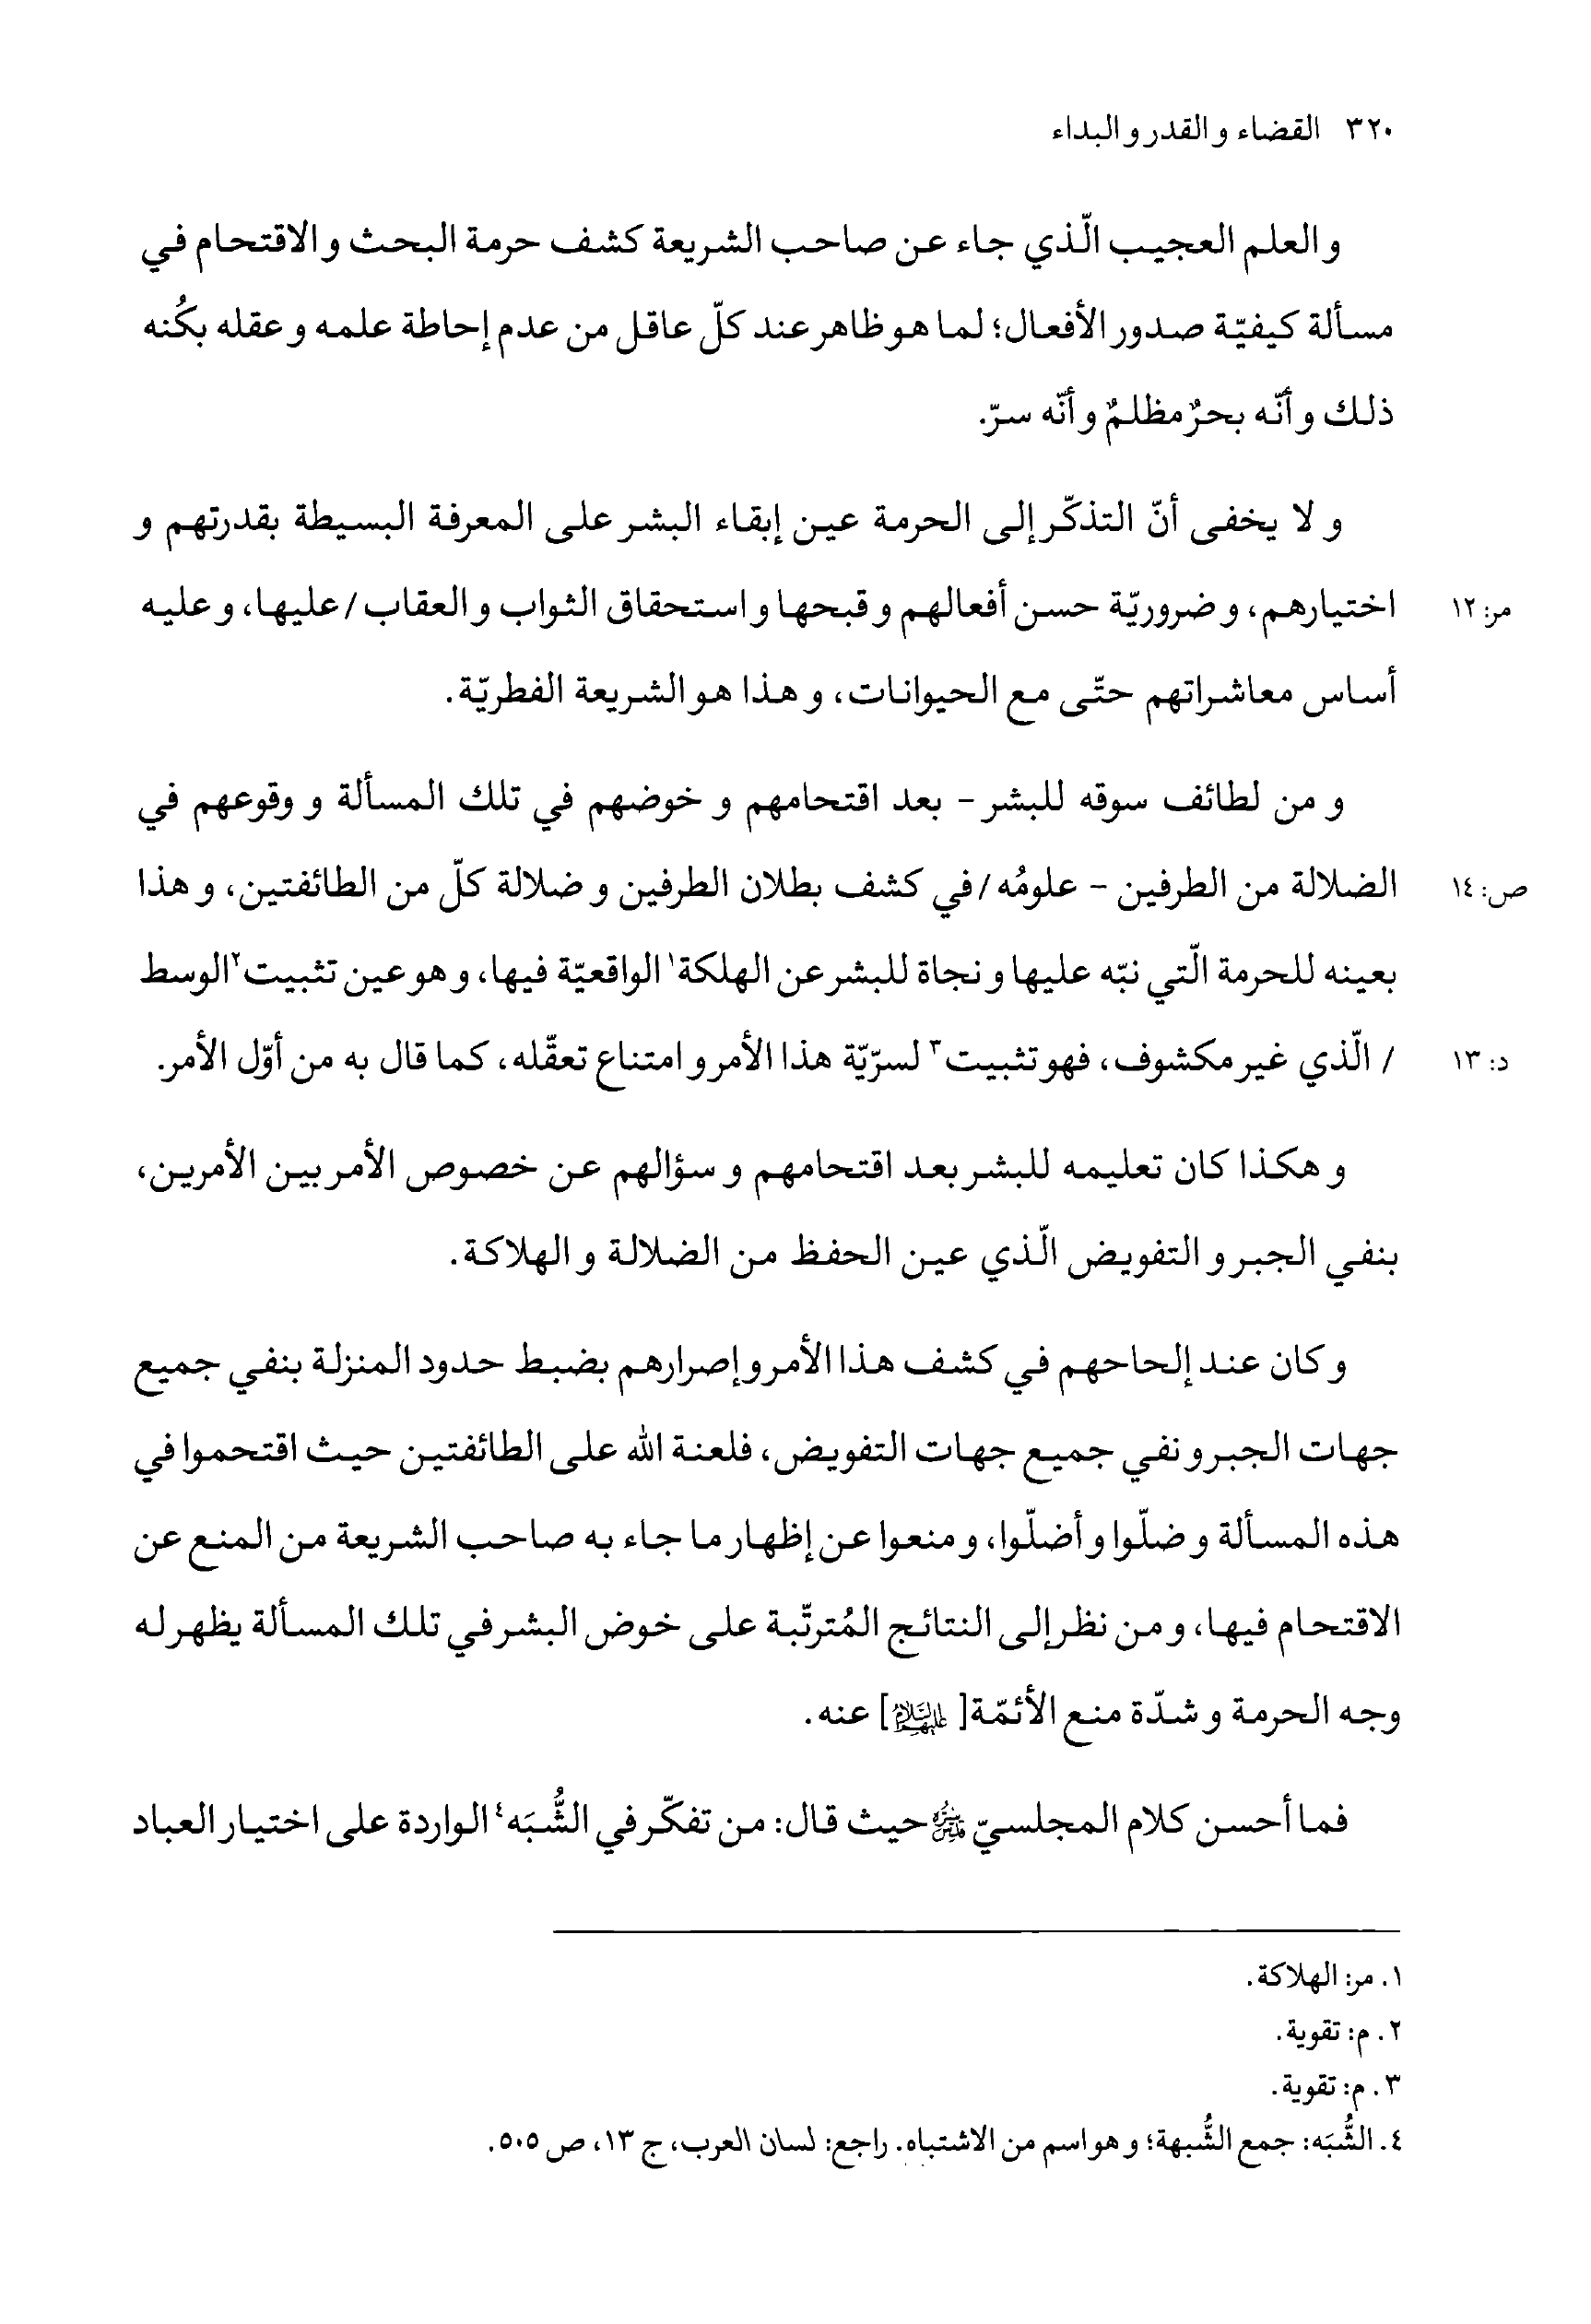 ٣٢٠ القضاء و القدر و البداء
و العلم العجيب الّذي جاء عن صاحب الشريعة كشف حرمة البحث و الاقتحام في
مسألة كيفيّة صدور الأفعال؛ لما هو ظاهر عند كلّ عاقل من عدم إحاطة علمه و عقله بكُنه
ذلك و أنّه بحرٌ مظلمٌ و أنّه سرّ.
و لا يخفى أنّ التذكّر إلى الحرمة عين إبقاء البشر على المعرفة البسيطة بقدرتهم و
اختيارهم، و ضروريّة حسن أفعالهم و قبحها و استحقاق الثواب و العقاب / عليها، و عليه
مر: ١٢
أساس معاشراتهم حتّى مع الحيوانات، و هذا هو الشريعة الفطريّة.
و من لطائف سوقه للبشر - بعد اقتحامهم و خوضهم في تلك المسألة و وقوعهم في
الضلالة من الطرفين - علومُه / في كشف بطلان الطرفين و ضلالة كلّ من الطائفتين، و هذا
ص: ١٤
بعينه للحرمة الّتي نبّه عليها و نجاة للبشر عن الهلكة١ الواقعيّة فيها، و هو عين تثبيت٢ الوسط
/ الّذي غير مكشوف، فهو تثبيت٣ لسرّيّة هذا الأمر و امتناع تعقّله، كما قال به من أوّل الأمر.
د: ١٣
و هكذا كان تعليمه للبشر بعد اقتحامهم و سؤالهم عن خصوص الأمر بين الأمرين،
بنفي الجبر و التفويض الّذي عين الحفظ من الضلالة و الهلاكة.
و كان عند إلحاحهم في كشف هذا الأمر و إصرارهم بضبط حدود المنزلة بنفي جميع
جهات الجبر و نفي جميع جهات التفويض، فلعنة الله على الطائفتين حيث اقتحموا في
هذه المسألة و ضلّوا و أضلّوا، و منعوا عن إظهار ما جاء به صاحب الشريعة من المنع عن
الاقتحام فيها، و من نظر إلى النتائج المُترتّبة على خوض البشر في تلك المسألة يظهر له
وجه الحرمة و شدّة منع الأئمّة [عليهم السلام] عنه.
فما أحسن كلام المجلسيّ قدس سره حيث قال: من تفكّر في الشُّبَه٤ الواردة على اختيار العباد
١. مر: الهلاكة.
٢. م: تقوية.
٣. م: تقوية.
٤. الشُّبَه: جمع الشُّبهة؛ و هو اسم من الاشتباه. راجع: لسان العرب، ج ١٣، ص ٥٠٥.